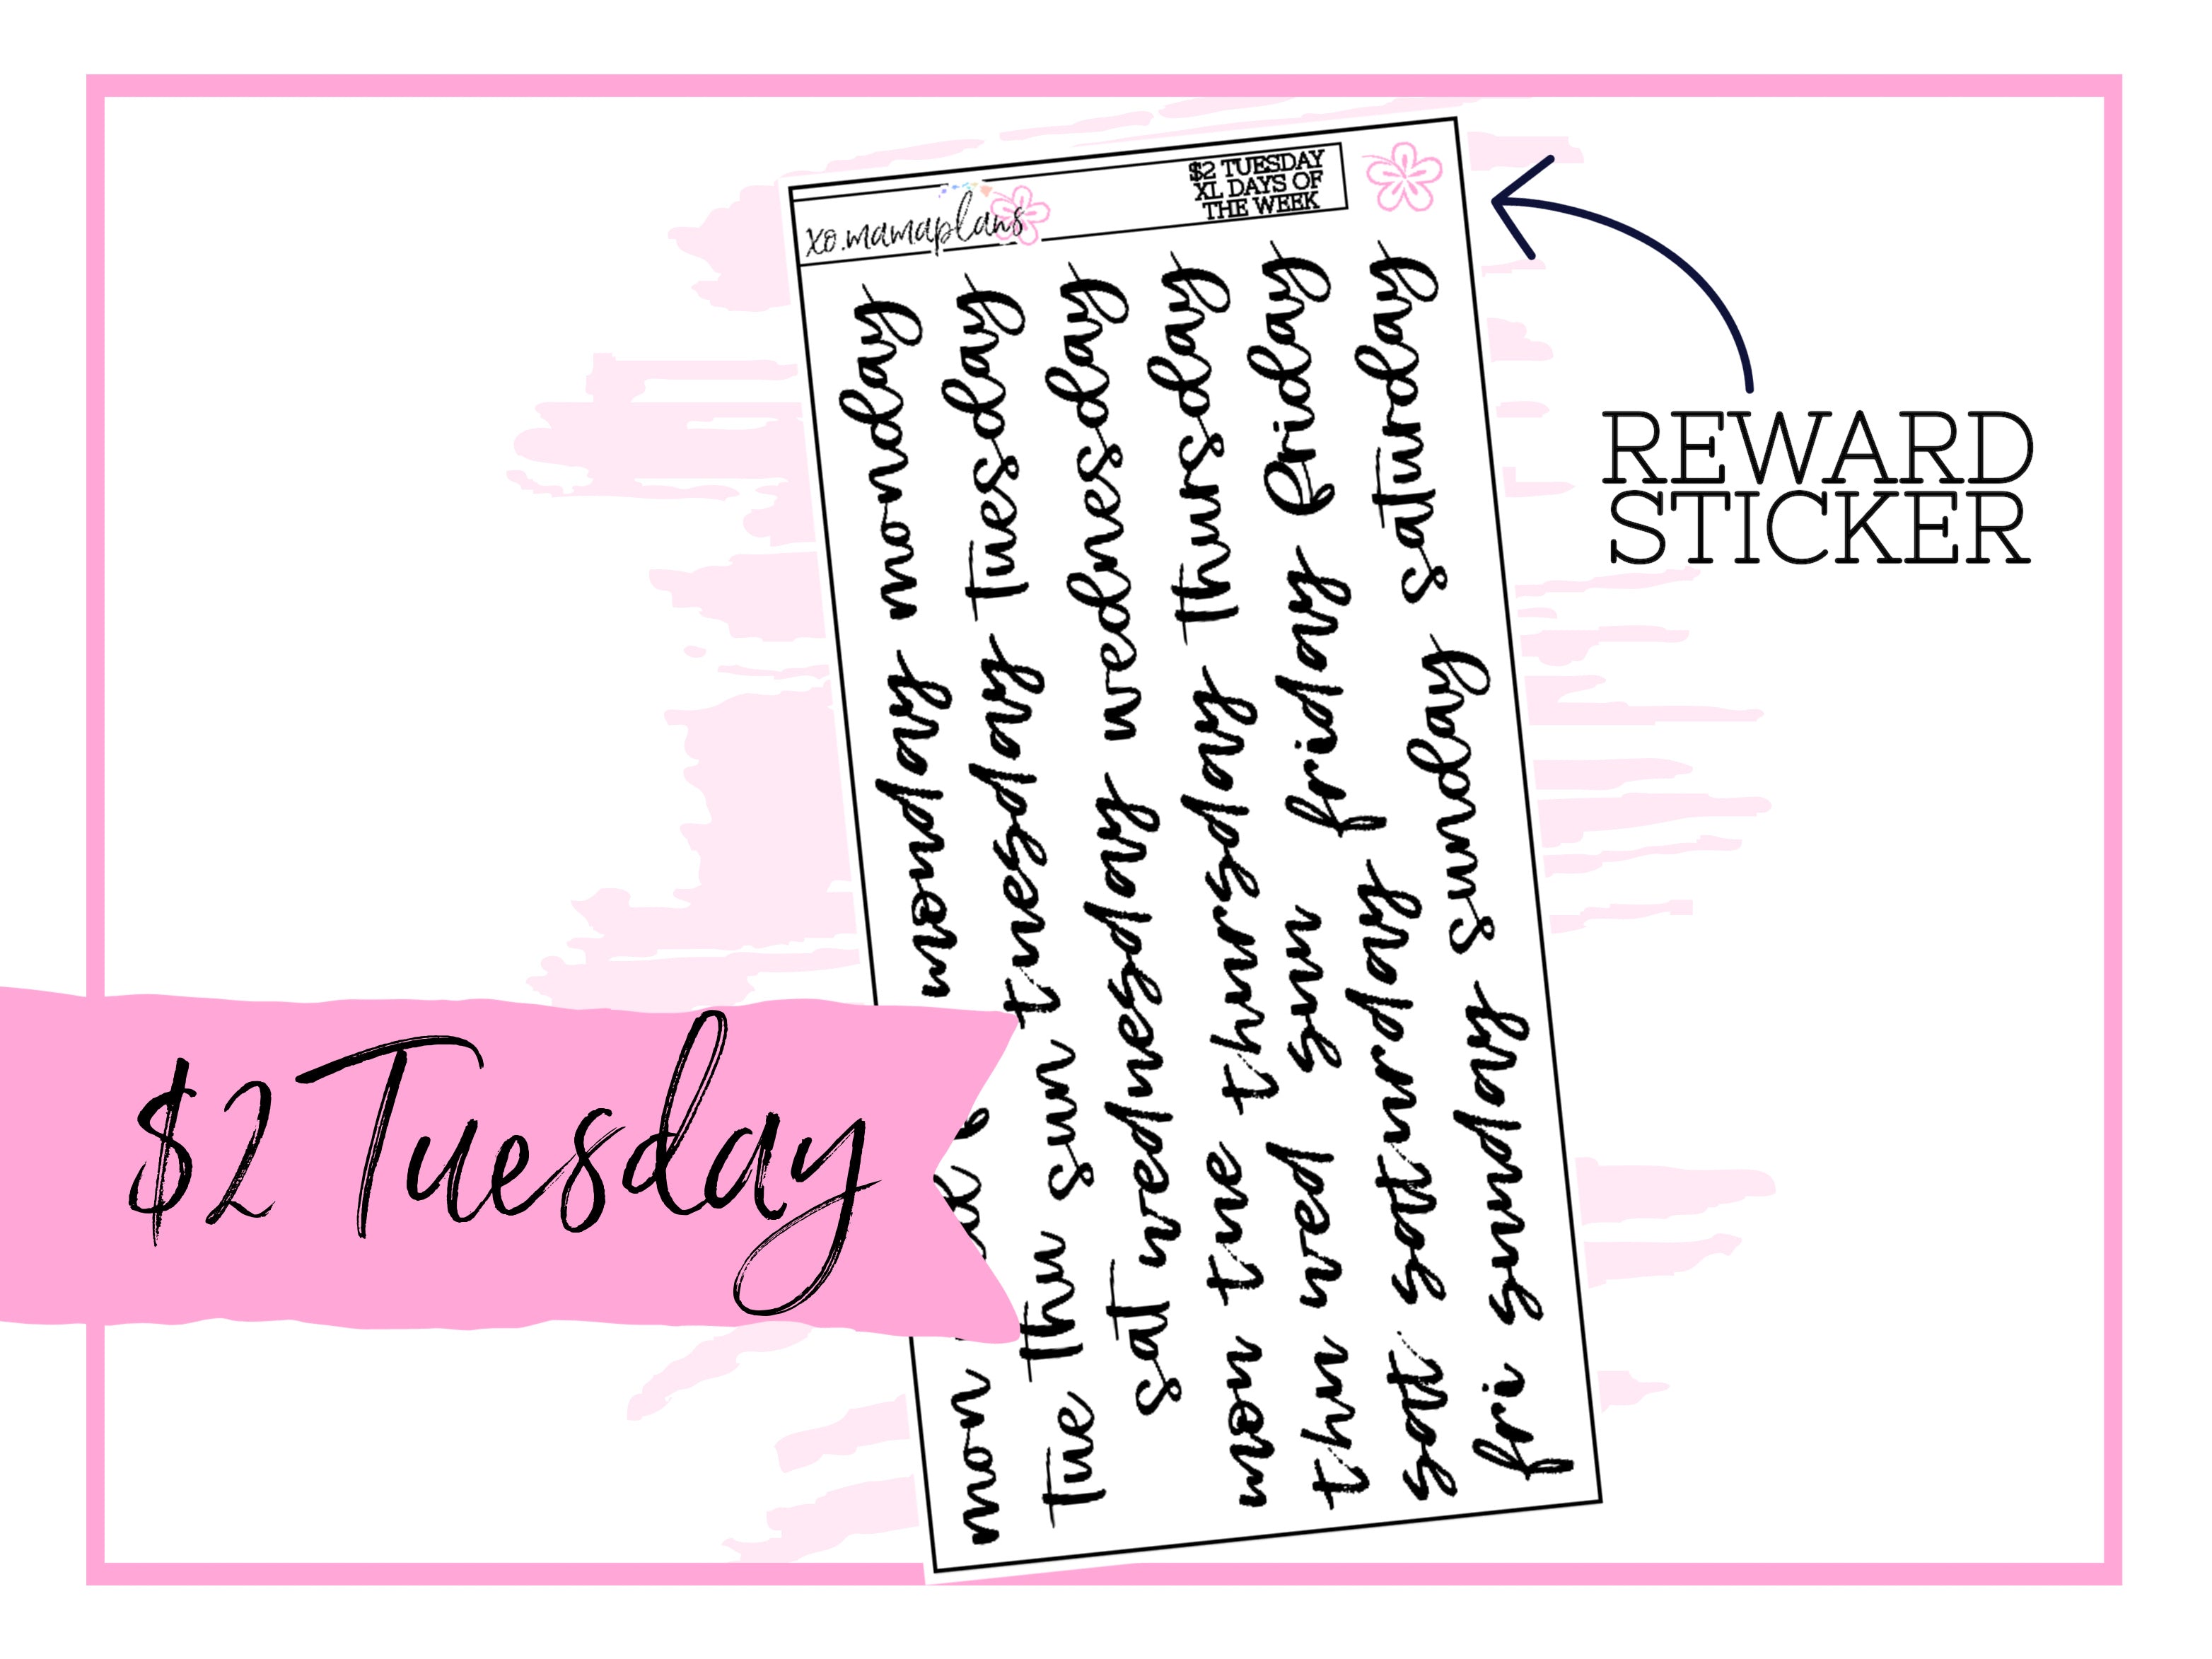 xo.mamaplans
$2 TUESDAY
XL DAYS OF
THE WEEK
REWARD
STICKER
$2 Tuesday
mon monday monday
tue thu sun tuesday tuesday
sat wednesday wednesday
mon tue thursday thursday
thu wed sun friday friday
sat saturday saturday
fri sunday sunday